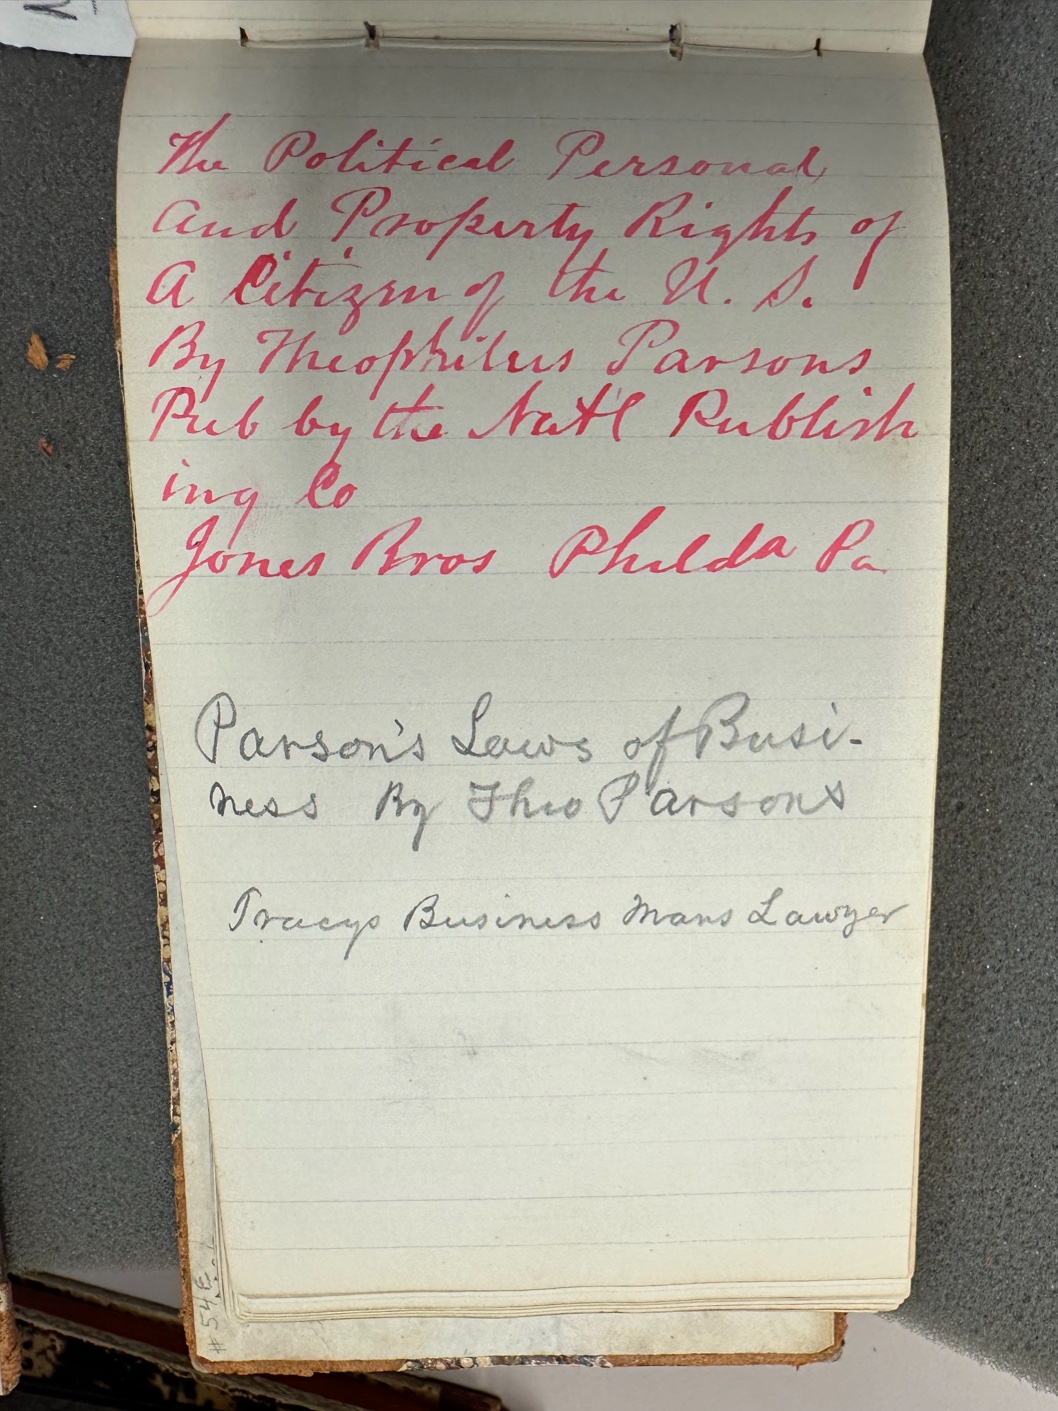 The Political Personal
And Property Rights of
A Citizen of the U. S.
By Theophilus Parsons
Pub by the Nat'l Publish
ing Co
Jones Bros Philda Pa
Parson's Laws of Busi-
ness By Theo Parsons
Tracys Business Mans Lawyer